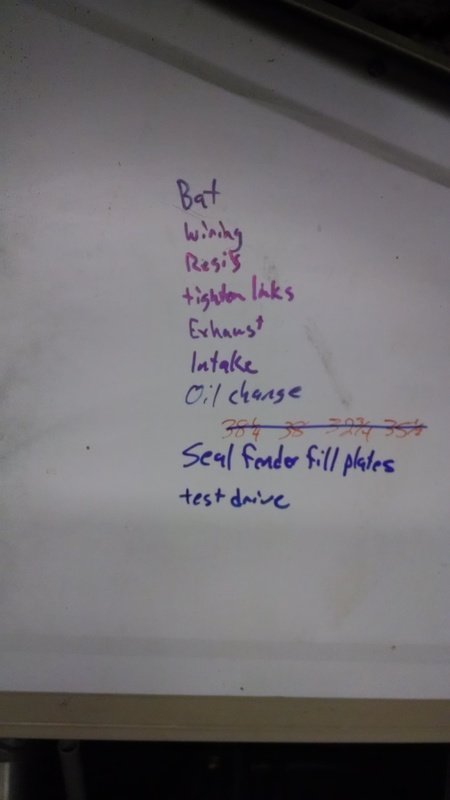 Bat
Wiring
Resi's
tighten links
Exhaust
Intake
Oil change
38 1/4 38
Seal fender fill plates
test drive